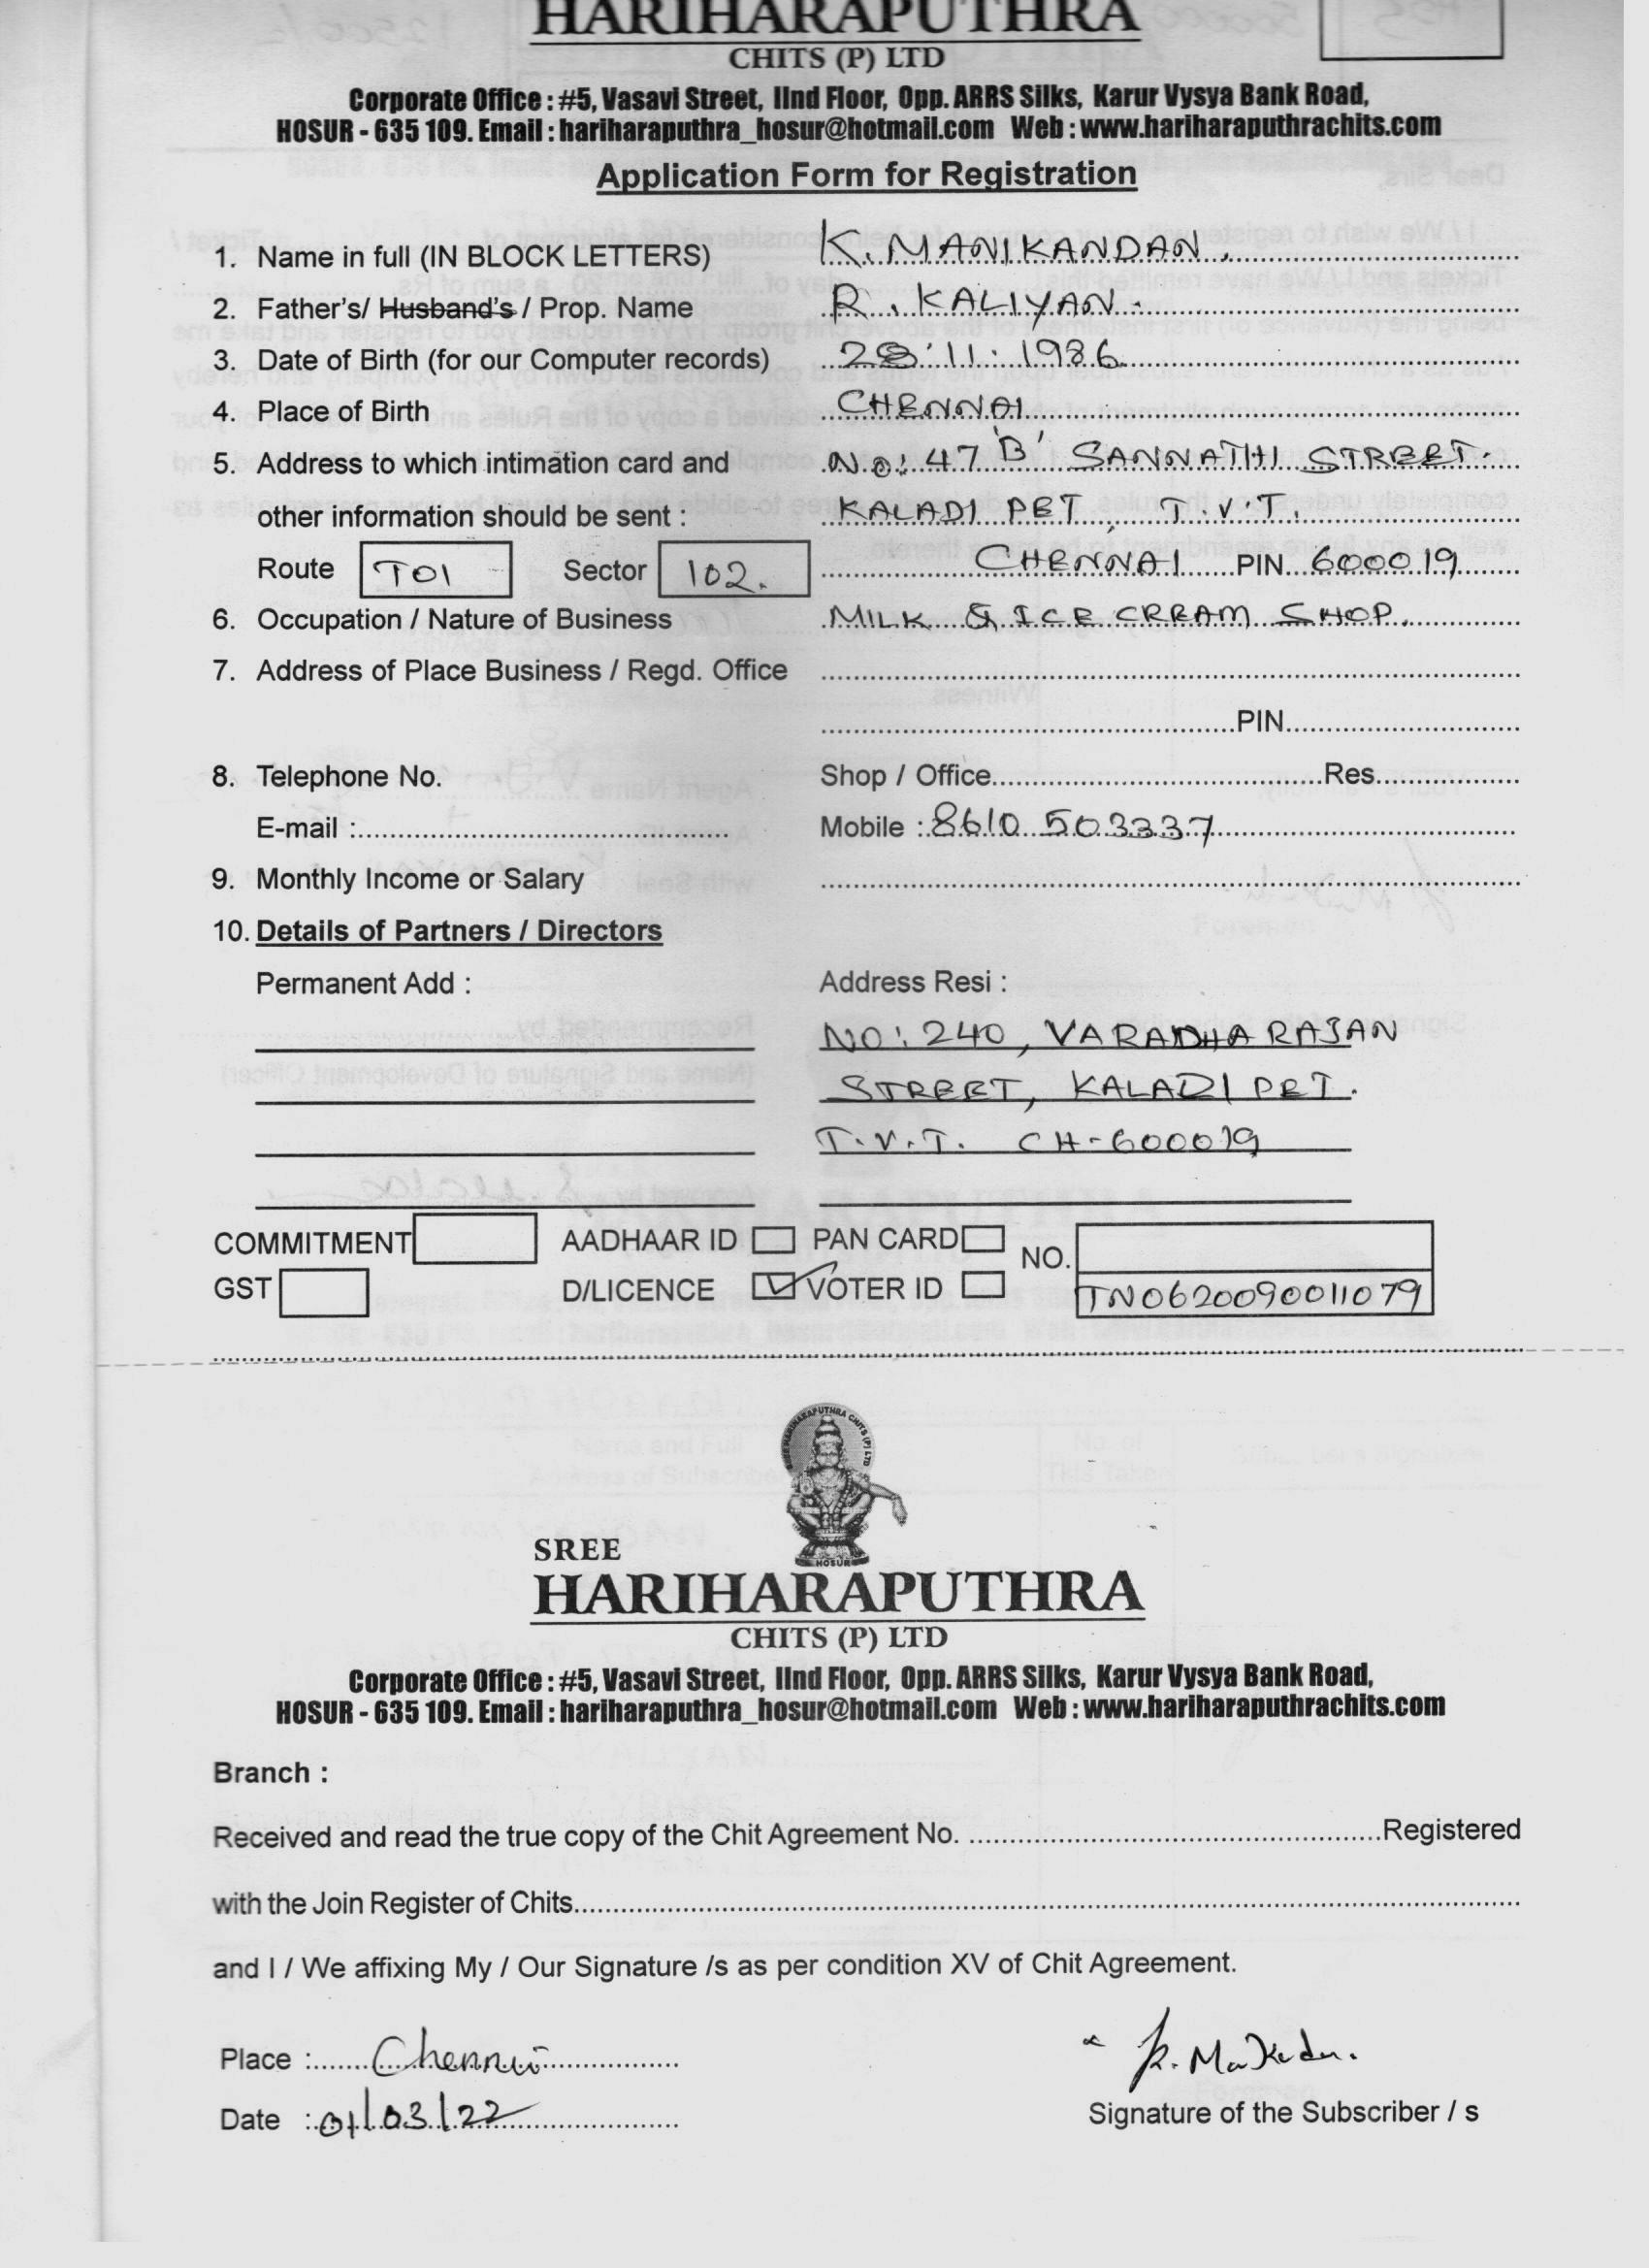 HARIHARAPUTHRA
CHITS (P) LTD
Corporate Office : #5, Vasavi Street, IInd Floor, Opp. ARRS Silks, Karur Vysya Bank Road,
HOSUR - 635 109. Email : hariharaputhra_hosur@hotmail.com Web : www.hariharaputhrachits.com
Application Form for Registration
1. Name in full (IN BLOCK LETTERS) K. MANIKANDAN.
2. Father's/ Husband's / Prop. Name R. KALIYAN.
3. Date of Birth (for our Computer records) 28.11.1986
4. Place of Birth CHENNAI
5. Address to which intimation card and No: 47 'B' SANNATHI STREET.
other information should be sent : KALADI PET, T.V.T.
Route T01 Sector 102. CHENNAI PIN 600019
6. Occupation / Nature of Business MILK & ICE CREAM SHOP.
7. Address of Place Business / Regd. Office
PIN
8. Telephone No. Shop / Office Res
E-mail : Mobile : 8610 503337
9. Monthly Income or Salary
10. Details of Partners / Directors
Permanent Add : Address Resi :
NO: 240, VARADHARAJAN
STREET, KALADI PET.
T.V.T. CH-600019
COMMITMENT AADHAAR ID PAN CARD NO.
GST D/LICENCE VOTER ID TN0620090011079
SREE HARIHARAPUTHRA CHITS (P) LTD
HOSUR
SREE
HARIHARAPUTHRA
CHITS (P) LTD
Corporate Office : #5, Vasavi Street, IInd Floor, Opp. ARRS Silks, Karur Vysya Bank Road,
HOSUR - 635 109. Email : hariharaputhra_hosur@hotmail.com Web : www.hariharaputhrachits.com
Branch :
Received and read the true copy of the Chit Agreement No. Registered
with the Join Register of Chits
and I / We affixing My / Our Signature /s as per condition XV of Chit Agreement.
Place : Chennai
Date : 01/03/22
Signature of the Subscriber / s